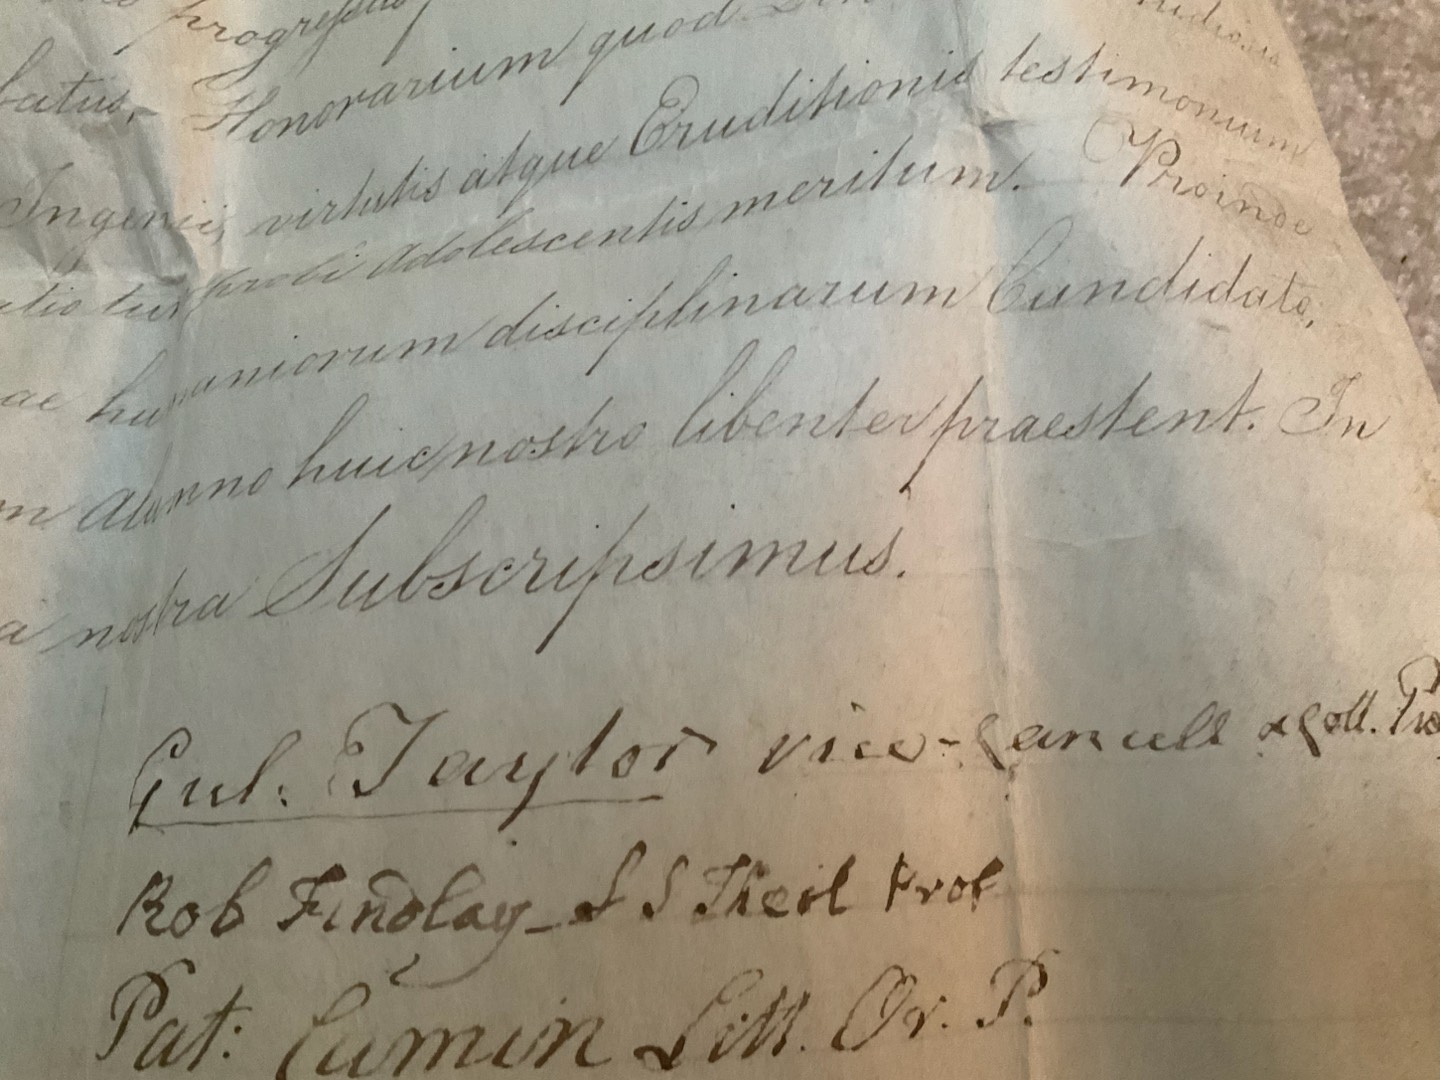 progressus
batus, Honorarium quod
Ingenii, virtutis atque Eruditionis testimonium
probi adolescentis meritum. Proinde
ae humaniorum disciplinarum Candidato,
m Alumno huic nostro libenter praestent. In
a nostra Subscripsimus.
Gul: Taylor vice-Cancell & Coll. Pro
Rob Findlay S S Theol Prof
Pat: Cumin Litt. Or. P.